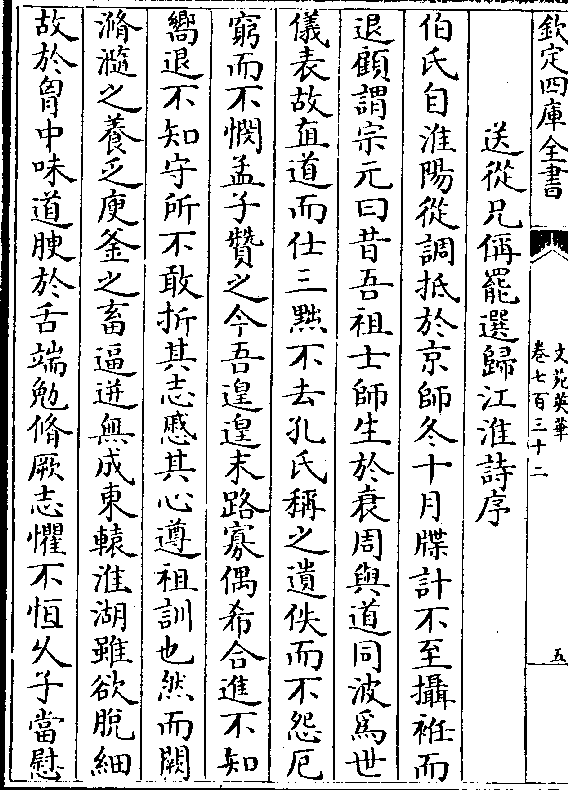 欽定四庫全書
文苑英華
卷七百三十二
五
送從兄偁罷選歸江淮詩序
伯氏自淮陽從調抵於京師冬十月牒計不至攝袵而
退顧謂宗元曰昔吾祖士師生於衰周與道同波爲世
儀表故直道而仕三黜不去孔氏稱之遺佚而不怨厄
窮而不憫孟子贊之今吾遑遑末路寡偶希合進不知
嚮退不知守所不敢折其志慼其心遵祖訓也然而闕
滫瀡之養乏庾釜之畜逼迸無成東轅淮湖雖欲脫細
故於胷中味道腴於舌端勉脩厥志懼不恒久子當慰